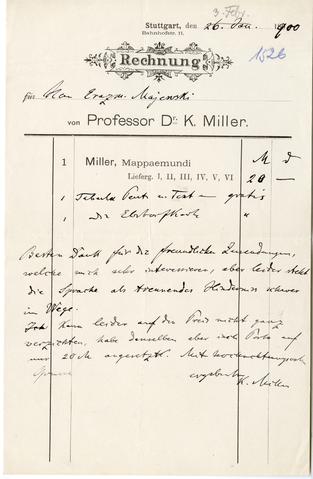 3. Febr.
Stuttgart, den 26. Jan. 1900
Bahnhofstr. 11.
1526
Rechnung
für Herrn Erazm. Majewski
von Professor Dr. K. Miller.
M d
1 Miller, Mappaemundi
Lieferg. I, II, III, IV, V, VI 20 —
1 Tabula Peut. m Text — gratis
1 die Ebstorfkarte "
Besten Dank für die freundlichen Zusendungen,
welche mich sehr interessieren, aber leider steht
die Sprache als trennendes Hinderniss schwer
im Wege.
Ich kann leider auf den Preis nicht ganz
verzichten, habe denselben aber incl. Porto auf
nur 20 M angesetzt. Mit hochachtungsvoll
ergebenst
K. Miller